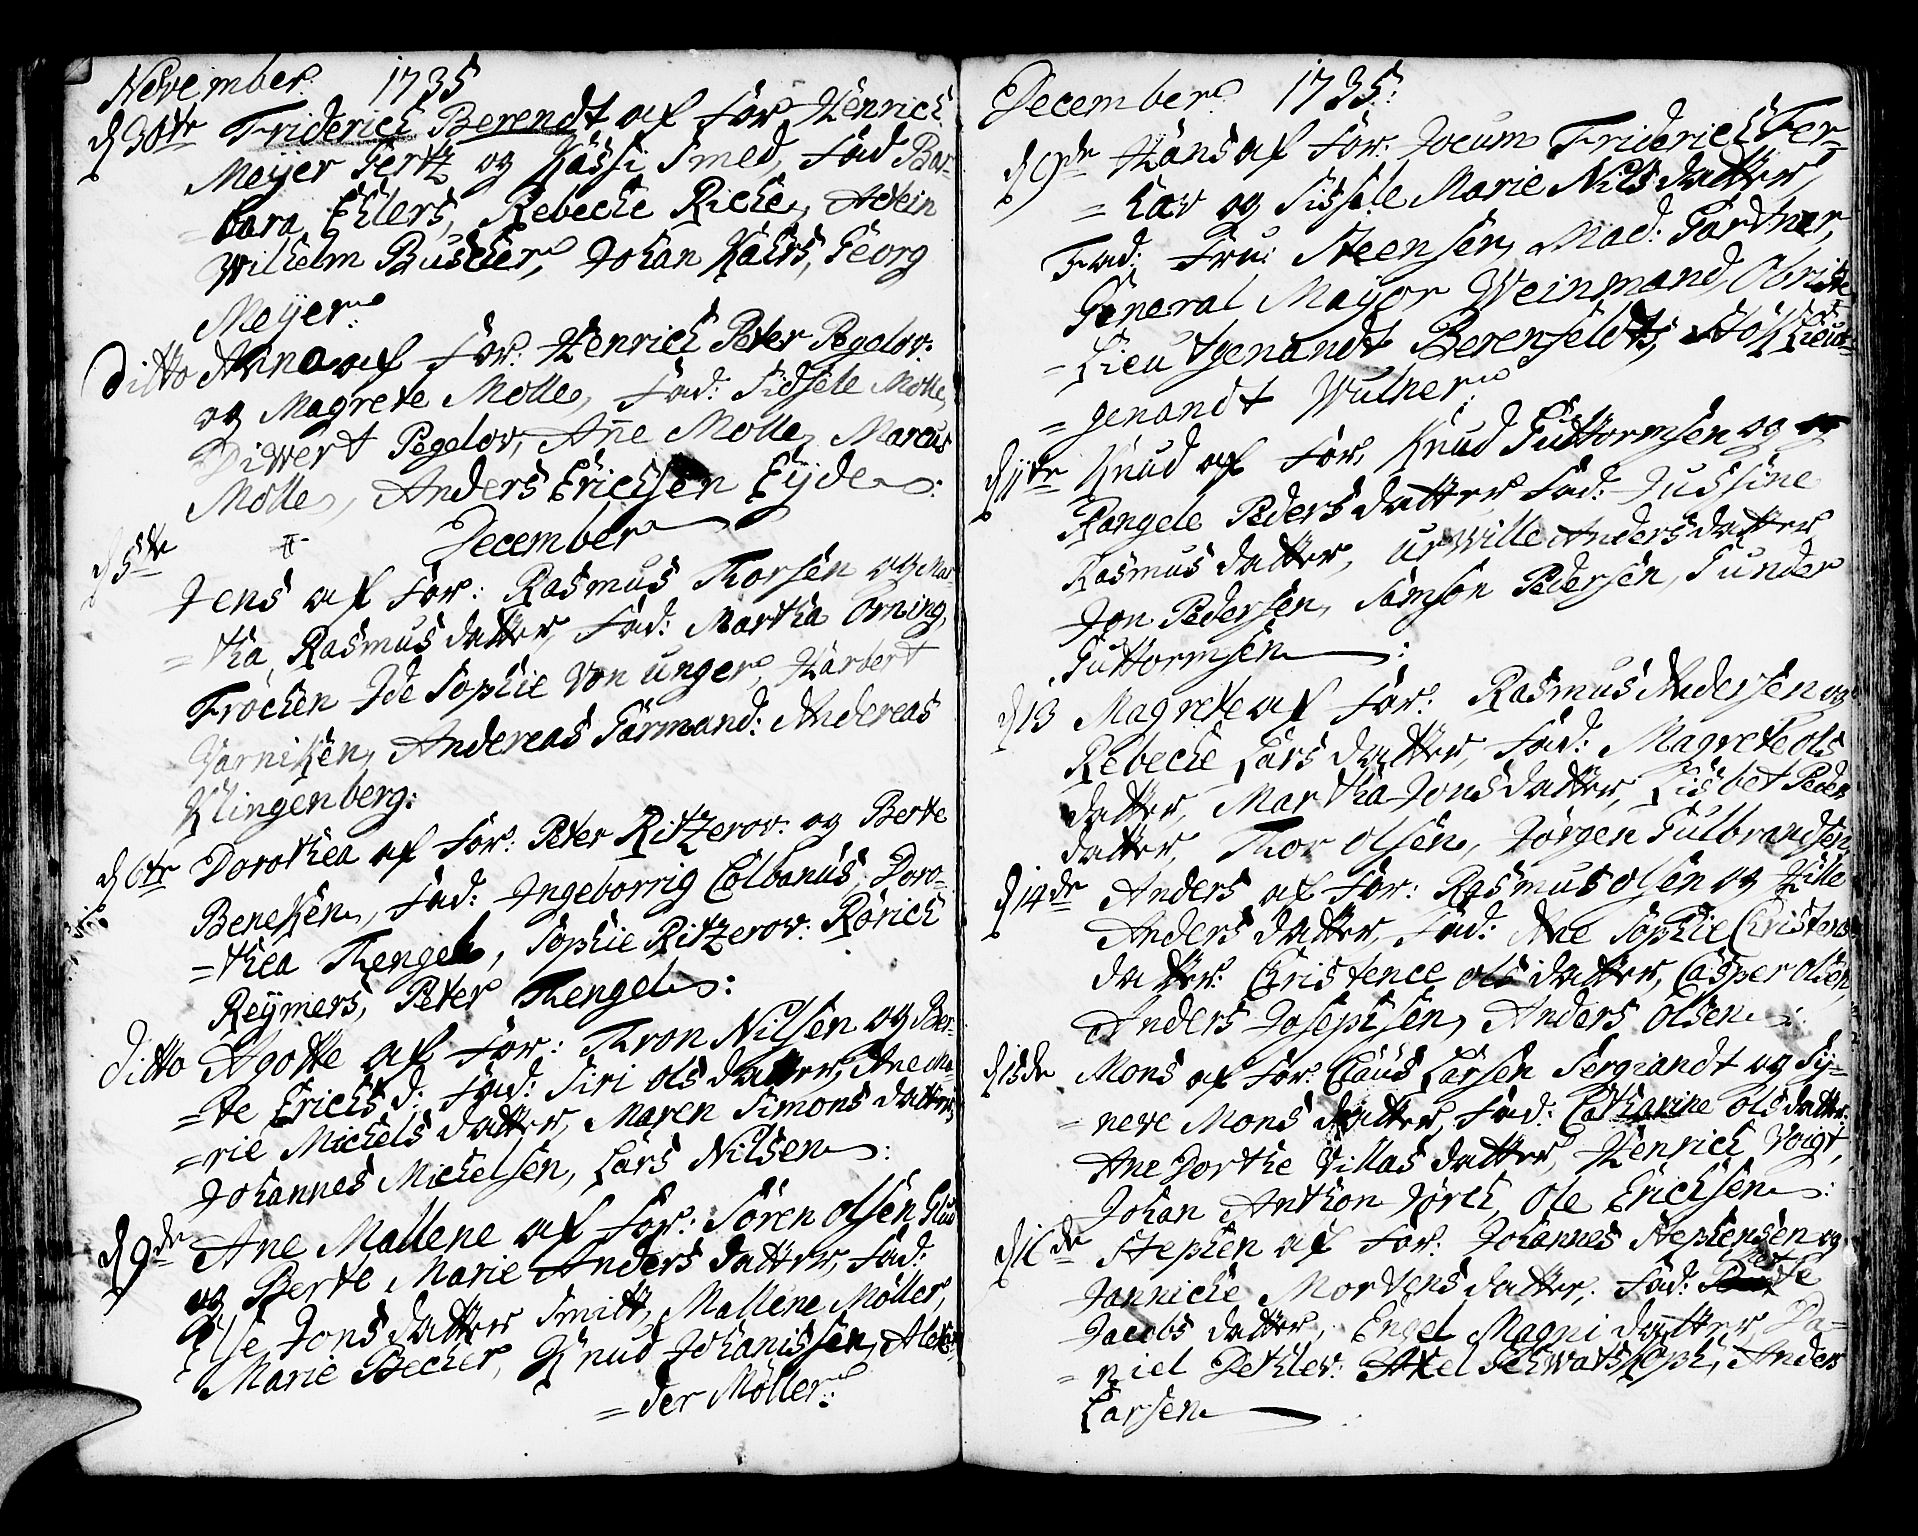 November: 1735
d 30te Friderich Berendt af For Henrich
Meyer Gertz og Kassi Smed, Fad Bar-
= bara Ehlers, Rebecke Riche, Adein
Wilhelm Buscher, Johan Kahrs, Georg
Meyer:
Ditto Anna af For: Henrich Peter Pegelov:
og Magrete Molle, Fad: Sidsele Molle,
Diwert Pegelov, Ane Molle, Marcus
Molle, Anders Erichsen Eyde:
December
d 5te
Jens af For: Rasmus Thorsen og Mar-
= tha Rasmus datter, Fad: Martha Orning,
Frøchen Ide Sophie Von unger, Harbert
Jarniken, Andereas Garmand: Andereas
Klingenberg:
d 6te Dorothea af For: Peter Ritzerov: og Berte
Beneken, Fad: Ingeborrig Colbanus, Doro-
= thea Thengel, Sophie Ritzerov: Rørich
Reymers, Peter Thengel:
ditto Agotte af For: Tron Nilsen og Ber-
= te Erichs d: Fad: Siri ols datter, Ane Ma
= rie Michels datter, Maren Simons datter,
Johannes Michelsen, Lars Nilsen:
d 9de Ane Mallene af For: Søren olsen Glud
og Berte Marie Anders datter, Fad:
Else Jons datter Smitt, Mallene Møller,
Marie Becher, Knud Johanissen, Alexan
= der Møller:
December 1735:
d 9de Hans af For: Jocum Friderich Fer-
= kav og Sissele Marie Nils datter,
Fad: Fru: Steensen, Mad: Gardtner,
General Mayor Weinmand, Obriste
= Lieutgenandt Berenfeldt, Lieut-
= genandt Wulner:
d 11te Knud af For, Knud Guttormsen og
Rangele Peders datter Fad: Jussine
Rasmus datter, urwille Anders datter
Jon Pedersen, Samson Pedersen, Gunder
Guttormsen:
d 13 Magrete af For: Rasmus Andersen og
Rebeche Lars datter, Fad: Magrete ols
datter, Martha Jons datter, Lisbet Peder
datter, Thor olsen, Jørgen Gulbrandsen
d 14de Anders af For: Rasmus olsen og Kille
Anders datter, Fad: Ane Sophie Christens
datter: Christence ols datter, Casper olsen,
Anders Josephsen, Anders olsen:
d 15de Mons af For: Claus Larsen Sergiandt og Sy-
= neve Mons datter, Fad: Catharine ols datter:
Ane Dorthe Villas datter, Henrich Voigt,
Johan Anthon Jørch, Ole Erichsen:
d 16de Stephen af For: Johannes Stephensen og
Jannicke Mortens datter, Fad: Berte
Jacobs datter, Engel Magni datter, Da-
= niel Dethlev: Axel Schwatskoph, Anders
Larsen